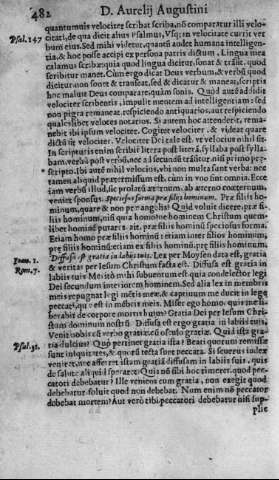 482 D. Aurelij Augustini
quantumuis velociter scribat scriba, nō comparatur illi velo-
Psal. 147 citati, de qua dicit alius Psalmus, Vsq; in velocitate currit ver
bum eius. Sed mihi videtur, quantū audet humana intelligen-
tia, & hoc posse accipi ex persona patris dictum, Lingua mea
calamus scribæ: quia quod lingua dicitur, sonat & trāsit: quod
scribitur manet. Cùm ergo dicat Deus verbum, & verbū quod
dicitur non sonet & transeat, sed & dicatur & maneat, scriptis
hoc maluit Deus comparare, quàm sonis. Quod autē addidit
velociter scribentis, impulit mentem ad intelligentiam: sed
non pigra remaneat, respiciendo antiquarios, aut respiciendo
quaslibet veloces notarios. Si autem hoc attenderit, rema-
nebit ibi ipsum velociter. Cogitet velociter, & videat quare
dictū sit velociter. Velociter Dei tale est, vt velocius nihil sit.
In scripturis enim scribitur litera post literā, syllaba post sylla-
bam, verbū post verbū, nec ad secundū trāsitur, nisi primo per-
scripto. Ibi autē nihil velociùs, vbi non multa sunt verba: nec
tamen aliquid prætermissum est, cùm in vno sint omnia. Ecce
iam verbū illud, sic prolatū æternum, ab æterno coæternum,
veniet sponsus. Speciosus forma præ filiis hominum. Præ filiis ho-
minum, quare & non præ angelis? Quid voluit dicere, præ fi-
liis hominum, nisi quia homo? ne hominem Christum quem-
libet hominē putares: ait, præ filiis hominū speciosus forma.
Etiam homo præ filiis hominū: etiam inter filios hominum,
præ filiis hominū: etiam ex filiis hominū, præ filiis hominum.
Diffusa est gratia in labiis tuis. Lex per Moysen data est, gratia
Ioan. 1. & veritas per Iesum Christum facta est. Diffusa est gratia in
Rom. 7. labiis tuis. Meritò mihi subuentum est, quia condelector legi
Dei secundum interiorem hominem. Sed alia lex in membris
meis repugnat legi mētis meæ, & captiuum me ducit in lege
peccati, quæ est in mēbris meis. Miser ego homo quis me li-
berabit de corpore mortis huius? Gratia Dei per Iesum Chri-
stum dominum nostrū. Diffusa est ergo gratia in labiis tuis.
Venit nobis cū verbo gratiæ, cū osculo gratiæ. Quid istā gra-
Psal. 31. tia dulcius? Quò pertinet gratia ista? Beati quorum remissæ
sunt iniquitates, & quorū tecta sunt peccata. Si seuerus iudex
veniret, nec afferret istam gratiā diffusam in labiis suis, quis
de salute aliquid speraret? Quis nō sibi hoc timeret, quod pec-
catori debebatur? Ille veniens cum gratia, non exegit quod
debebatur, soluit quod non debebat. Num enim nō peccator
debebat mortem? Aut verò tibi peccatori debebatur nisi sup-
plic